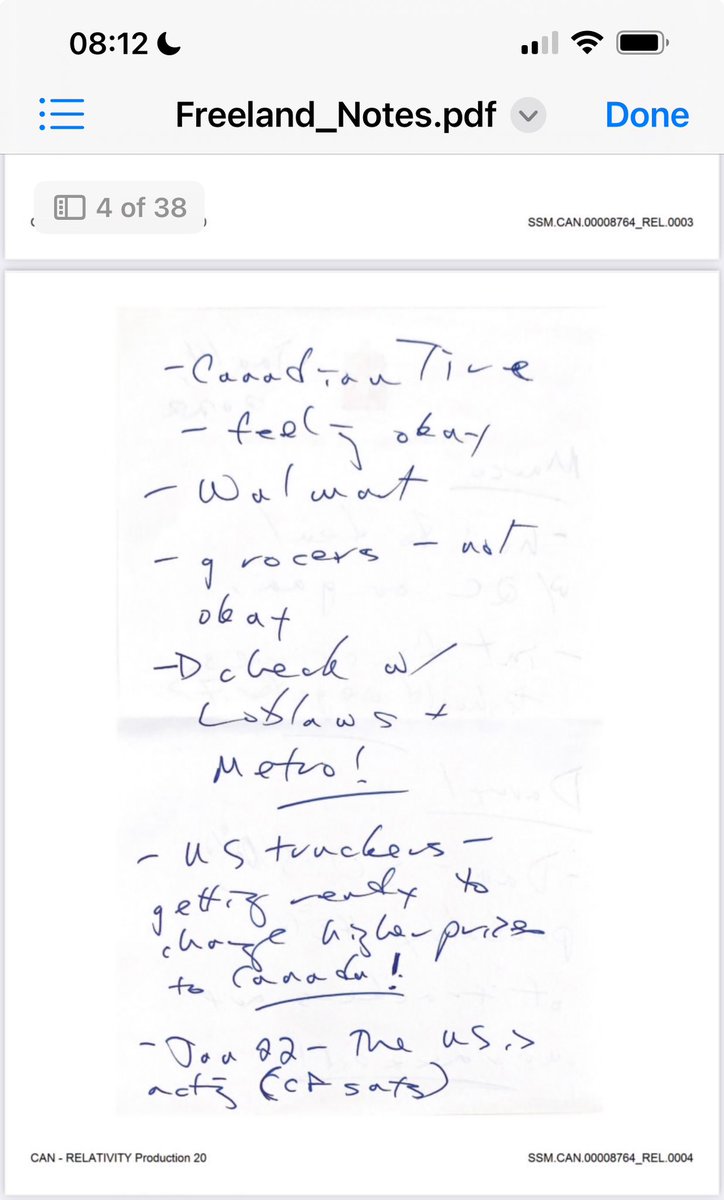 08:12
Freeland_Notes.pdf
Done
4 of 38
SSM.CAN.00008764_REL.0003
- Canadian Tire
- feeling okay
- Walmart
- grocers - not
okay
-> check w/
Loblaws +
Metro!
- US truckers -
getting ready to
charge higher prices
to Canada!
- Jan 22 - The US is
acting
CAN - RELATIVITY Production 20
SSM.CAN.00008764_REL.0004